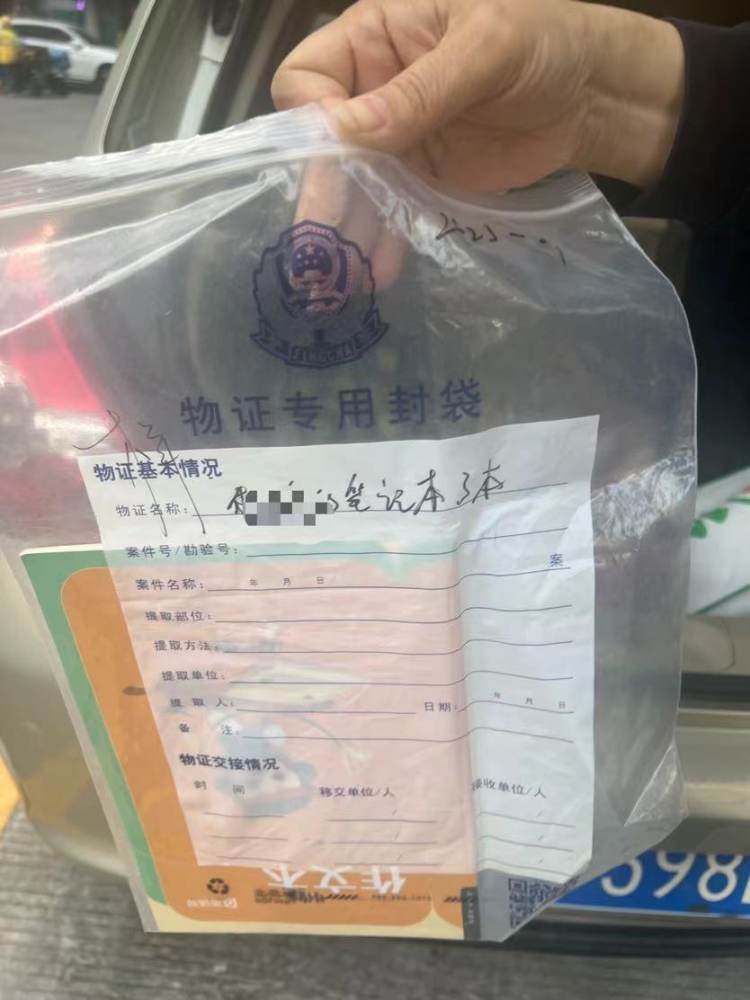 物证专用封袋
物证基本情况
物证名称: 笔记本3本
案件号/勘验号:
案
案件名称: 年 月 日
提取部位:
提取方法:
提取单位:
提 取 人: 日期: 年 月 日
备 注:
物证交接情况
时 间 移交单位/人 接收单位/人
作文本
598